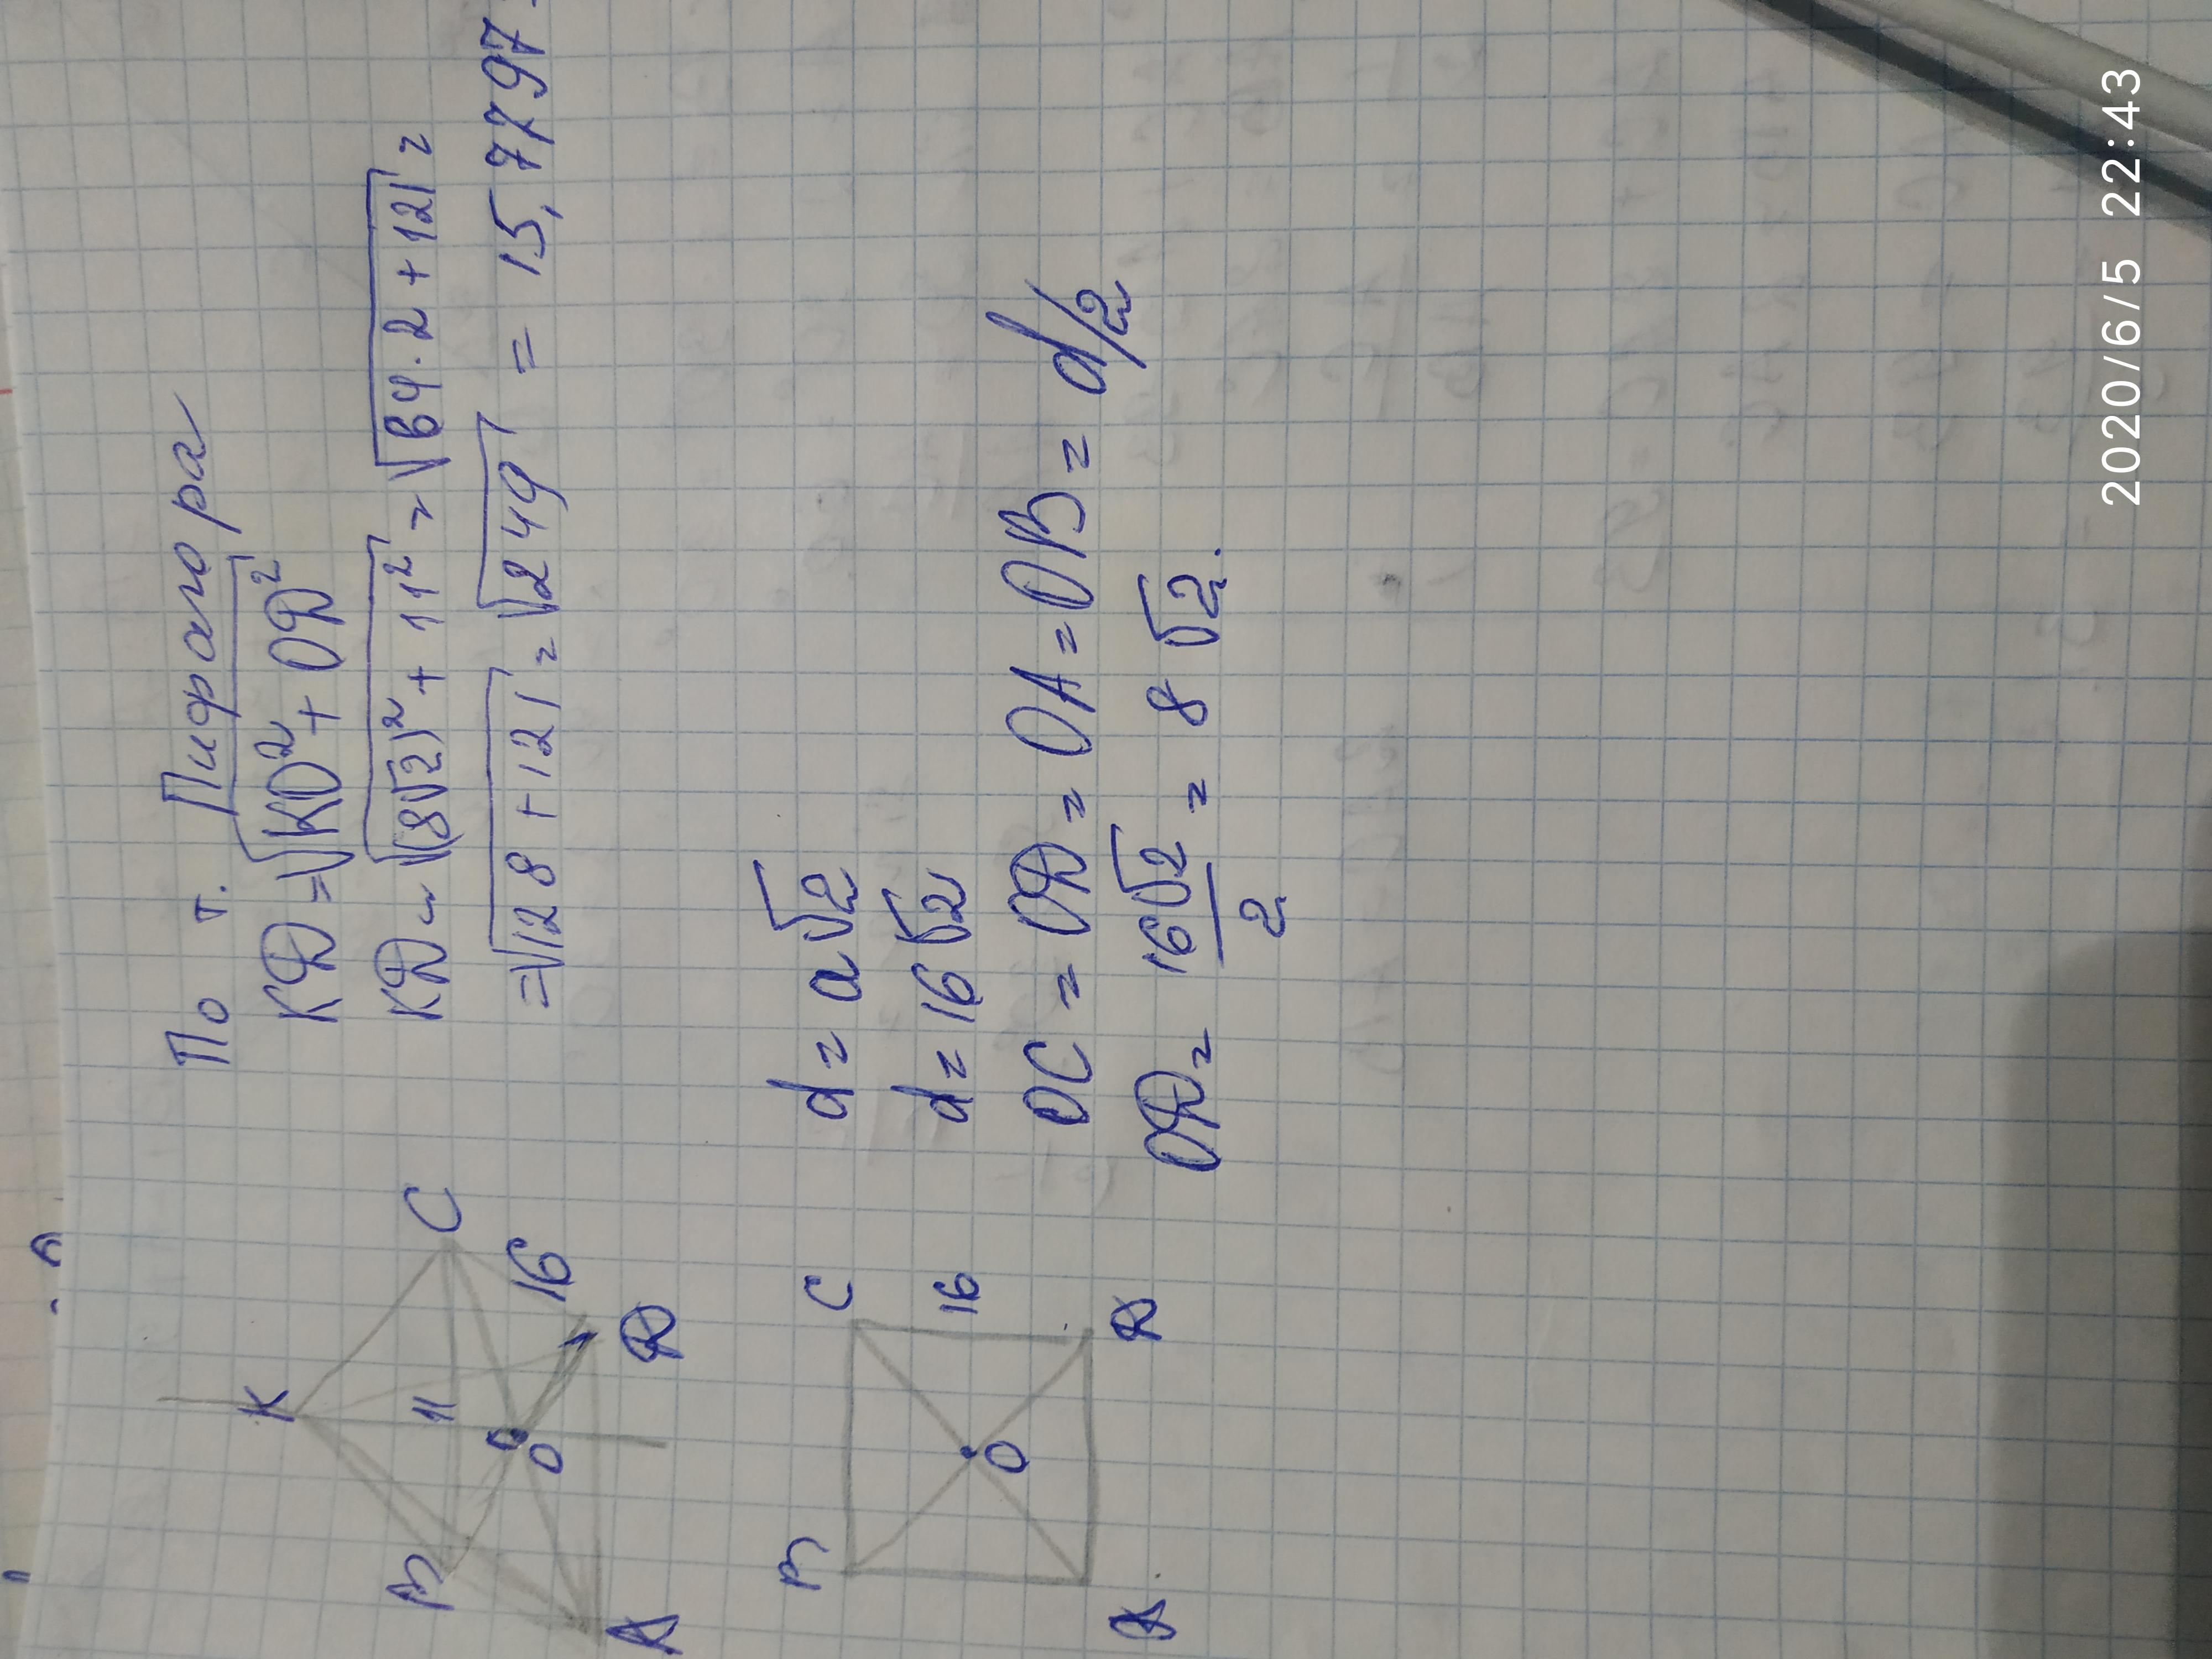 По т. Пифагора
КД = √KO² + ОД²
КД = √(8√2)² + 11² = √64·2 + 121 =
= √128 + 121 = √249 = 15,7797
K
B
C
11
O
16
A
Д
d = a√2
d = 16√2
OC = ОД = OA = OB = d/2
ОД = 16√2/2 = 8√2.
B
C
16
O
A
Д
2020/6/5 22:43